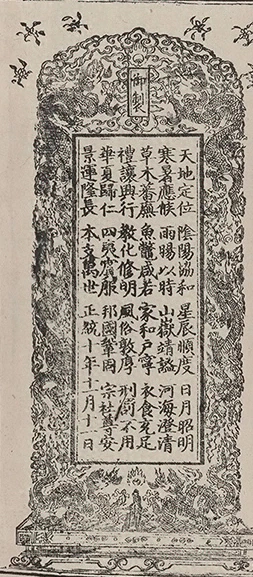 御製
天地定位 陰陽協和 星辰順度 日月昭明
寒暑應候 雨暘以時 山嶽靖謐 河海澄清
草木蕃廡 魚鼈咸若 家和戶寧 衣食充足
禮讓興行 敎化修明 風俗敦厚 刑罰不用
華夏歸仁 四夷賓服 邦國鞏固 宗社尊安
景運隆長 本支萬世 正統十年十一月十一日